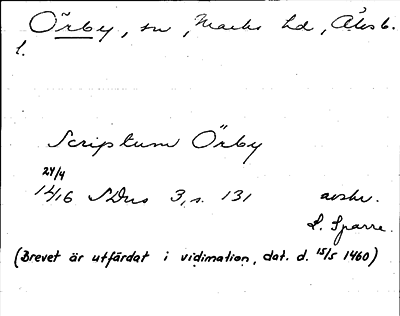 Örby, sn, Marks hd, Älvsb.
l.
Scriptum Örby
24/4
1416 SDns 3, s. 131 avskr.
L. Sparre.
(Brevet är utfärdat i vidimation, dat. d. 15/5 1460)